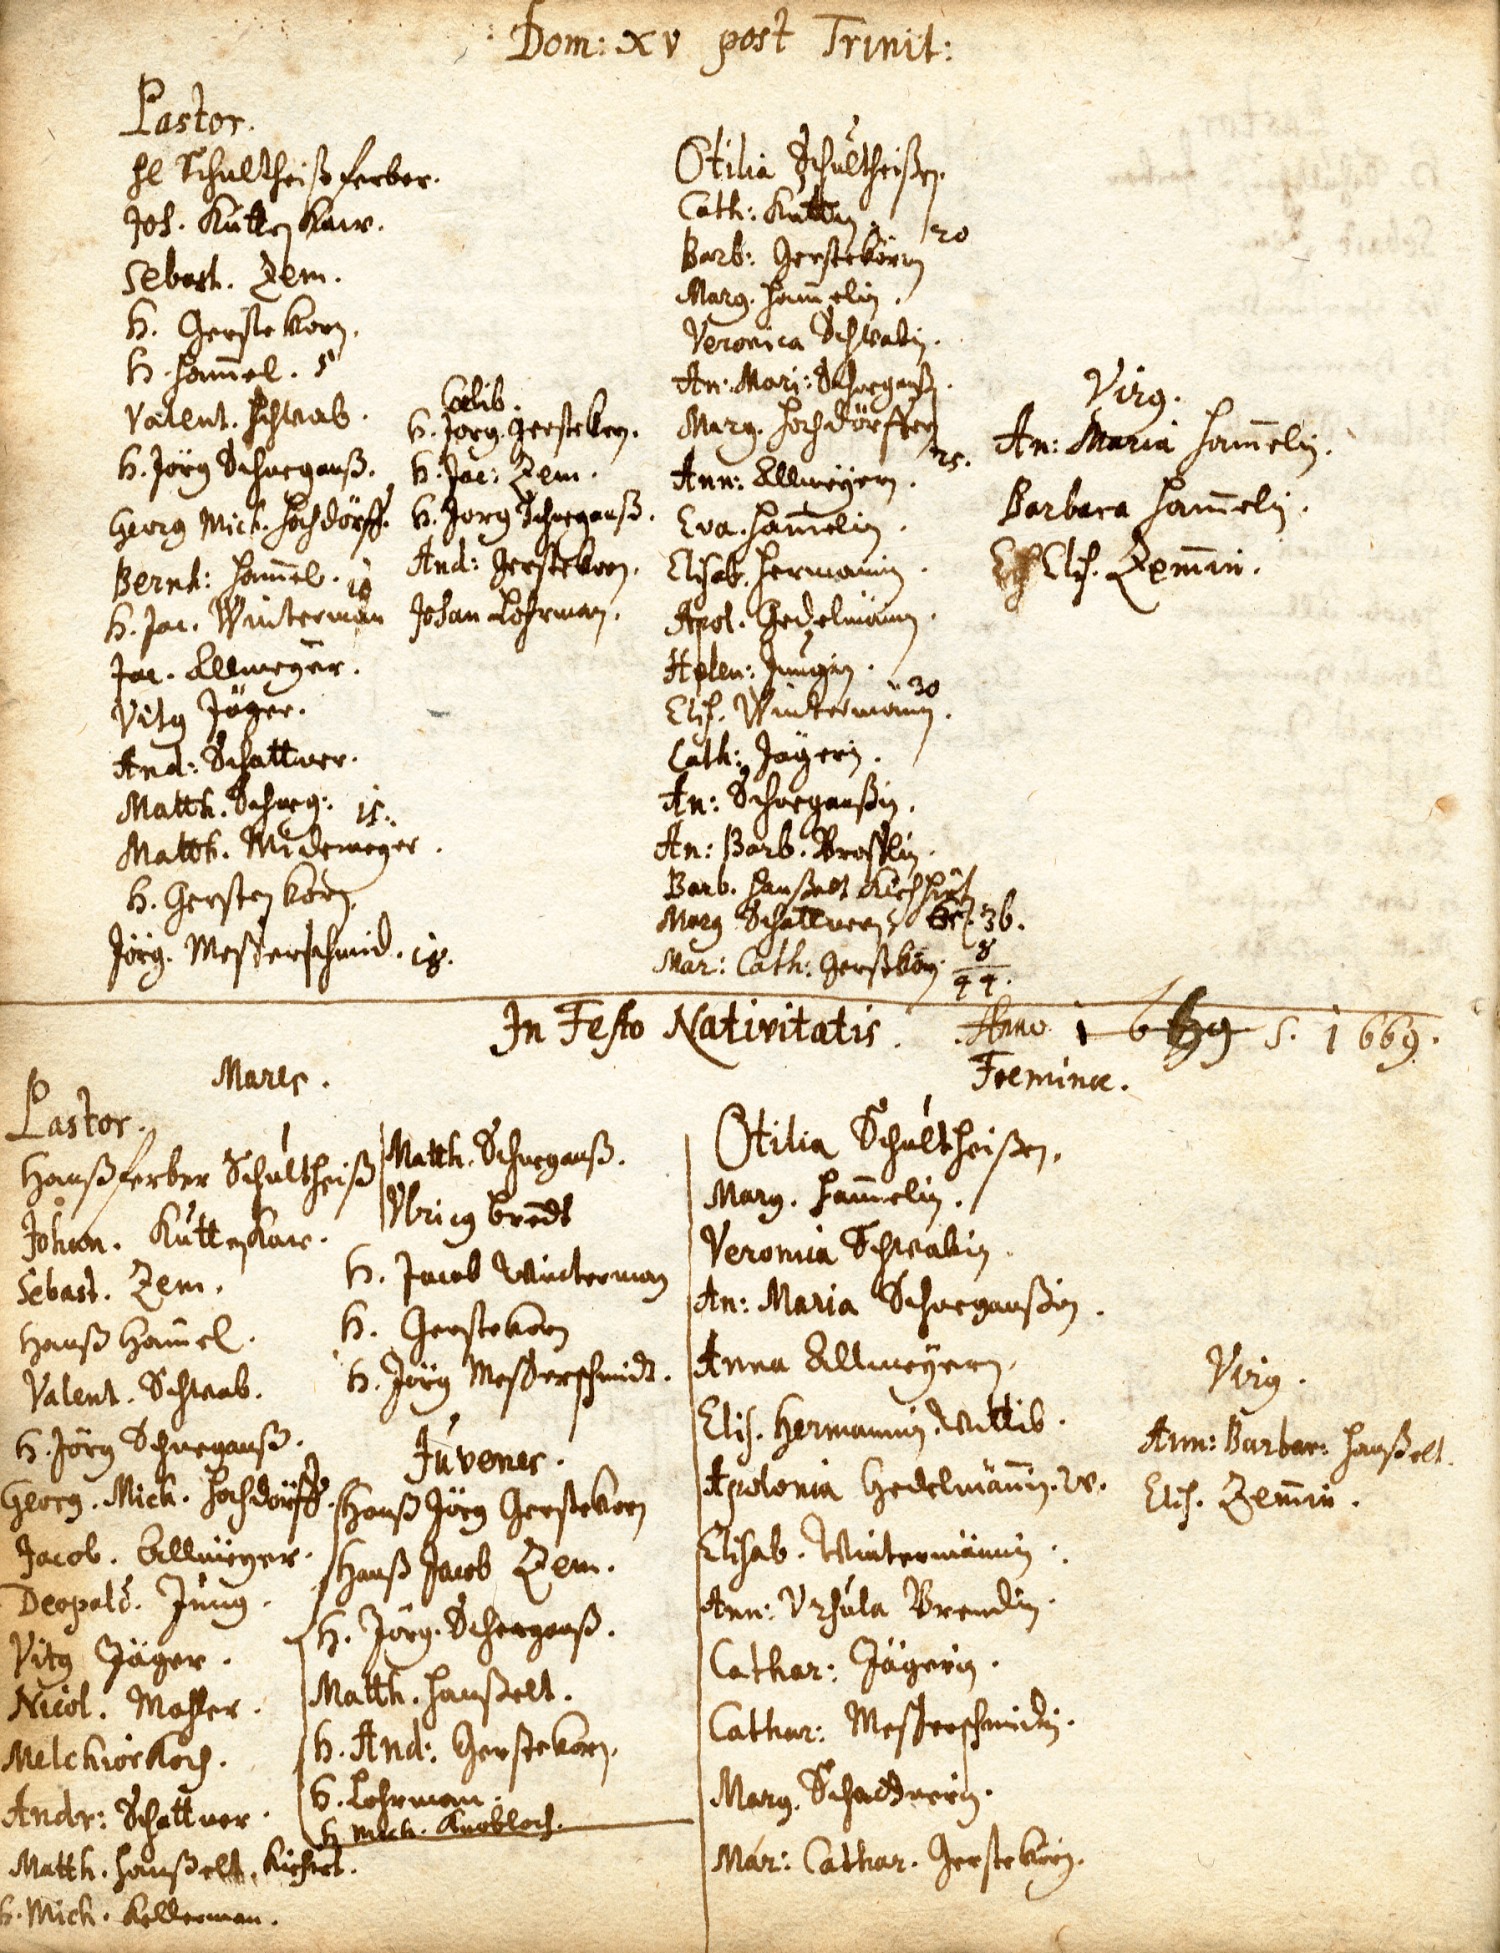 Dom: XV post Trinit:
Pastor.
Hl Schultheiß ferber.
Joh. Kutten Kaw.
Sebast. Zem.
H. Gerstekorn.
H. Ham̅el. 5
Valent. Schwab.
H. Jörg Schneganß.
Georg Mich. Hochdörff.
Bernh: Ham̅el. 10
H. Jac. Winterman
Jac. Ellmeyer.
Vitg Jäger.
And: Schattner.
Matth. Schneg: 15.
Matth. Midemeyer.
H. Gersten korn.
Jörg. Messerschmid. 18.
Cœlib.
H. Jorg. Gerstekorn.
H. Jac: Zem.
H. Jorg Schneganß.
And: Gerstekorn.
Johan Lohrman.
Otilia Schultheißen.
Cath: Kuttin. 20
Barb: Gerstekörin
Marg. Ham̅elin.
Veronica Schwabin.
An: Mari: Schneganß.
Marg. Hochdörffen 25.
Ann: Ellmeyern.
Eva. Ham̅elin.
Elisab. Hermanin.
Apol. Gedelmänin.
Helen: Jungin.
Elis. Wintermänin. 30
Cath: Jägerin.
An: Schneganßin.
An: Barb.
Barb. Hanßelt
Marg Schattnern 36.
Mar: Cath: Gerstkörn. 8
44.
Virg.
An: Maria Ham̅elin.
Barbara Ham̅elin.
Elis. Zem̅in.
In Festo Nativitatis. Anno 1669 S. 1669.
Mares.
Pastor.
Hanß ferber Schultheiß
Johan. Kutten Kaw.
Sebast. Zem.
Hanß Ham̅el.
Valent. Schwab.
H. Jörg Schneganß.
Georg. Mich. Hochdörff.
Jacob. Ellmeyer.
Deopald. Jung.
Vitg Jäger.
Nicol. Mahler.
Melchior Koch.
Andr: Schattner.
Matth. Hanßelt.
H. Mich. Kellerman.
Matth. Schneganß.
Vlricg Brendt
H. Jacob Winterman
H. Gerstekorn
H. Jörg Messerschmidt.
Juvenes.
Hanß Jörg Gerstekorn
Hanß Jacob Zem.
H. Jörg. Schneganß.
Matth. Hanßelt.
H. And: Gerstekorn.
H. Lohrman.
H Mich. Knobloch.
Foeminæ.
Otilia Schultheißen.
Marg. Ham̅elin.
Veronica Schwabin.
An: Maria Schneganßin.
Anna Ellmeyern.
Elis. Hermannin Wittib.
Apolonia Gedelmänin. W.
Elisab. Wintermänin.
Ann: Vrsula Brendin.
Cathar: Jägerin.
Cathar: Messerschmidin.
Marg. Schattnerin.
Mar: Cathar. Gerstekörn.
Virg.
Ann: Barbar: Hanßelt.
Elis. Zem̅in.